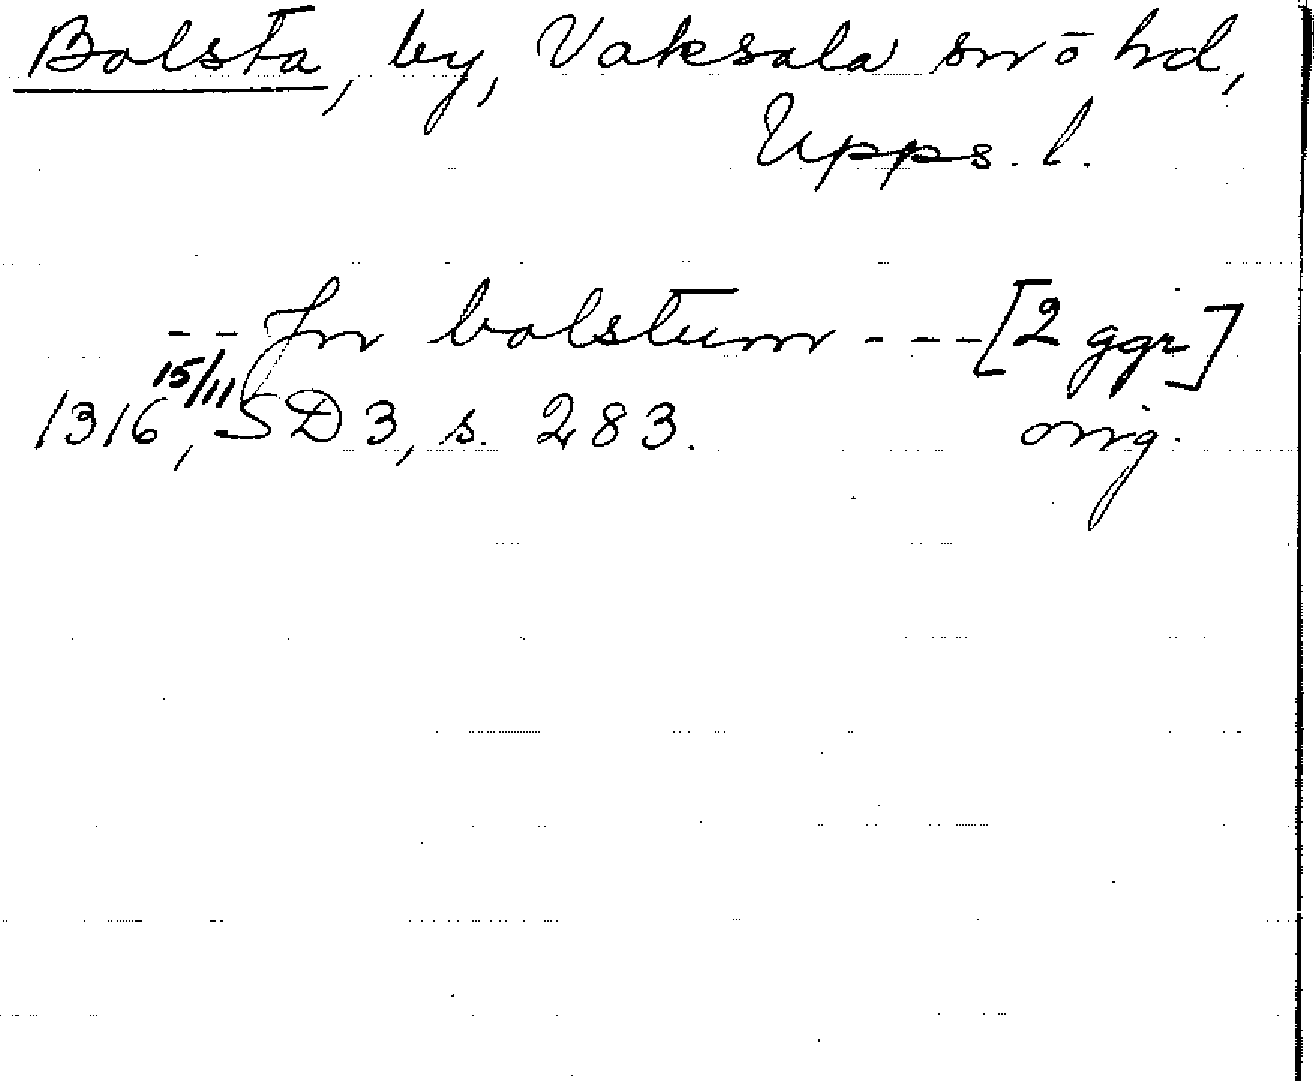 Bolsta, by, Vaksala sn o hd,
Upps. l.
-- Jn bolstum --- [2 ggr]
1316 15/11, SD 3, s. 283. orig.